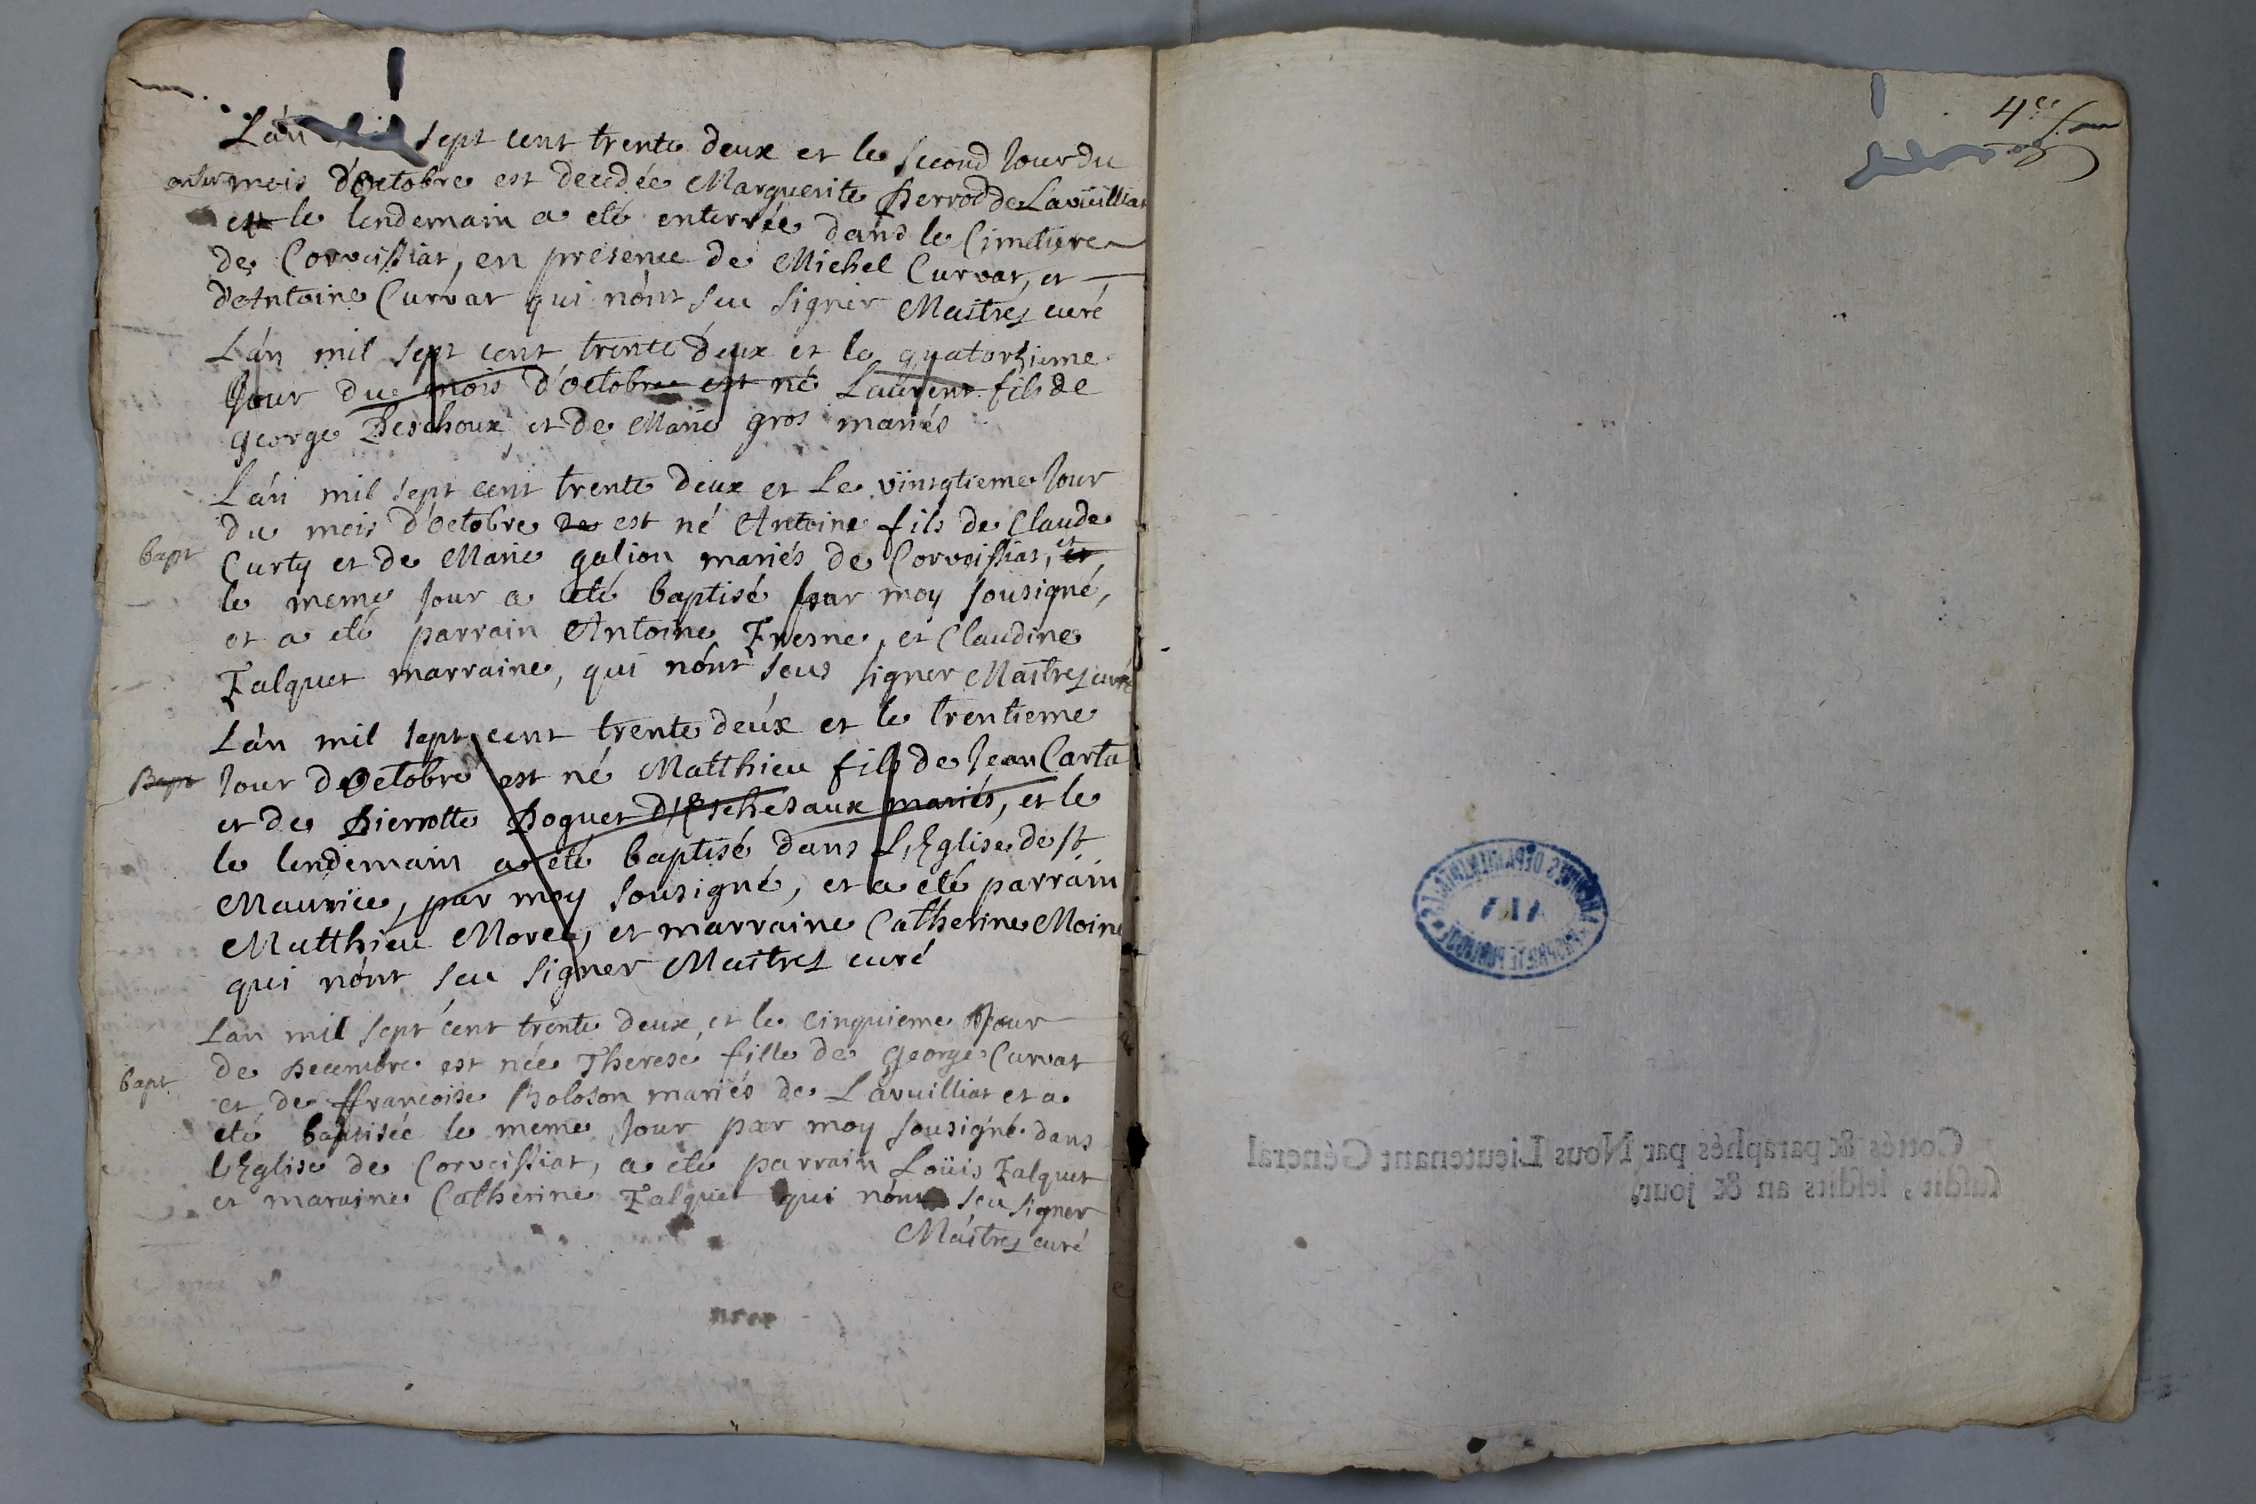 L'an sept cent trente deux et le second Jour du
mois d'octobre est decedée Marguerite Perrod de Lavüilliat
enter
est le lendemain a eté enterrée dans le Cimetiere
de Corveissiat, en presence de Michel Curvat, et
d'Antoine Curvat qui n'ont seu signer Maitrez curé
L'an mil sept cent trente deux et le quatorzieme
Jour du mois d'octobre est né Laurent fils de
george Deschoux et de Marie gros mariés
L'an mil sept cent trente deux et Le vintgtieme Jour
du mois d'octobre est né Antoine fils de Claude
bapt
Curty et de Marie galion mariés de Corveissiat, et
le meme Jour a eté baptisé par moy sousigné,
et a eté parrain Antoine Fresne, et Claudine
Falquet marraine, qui n'ont seus signer Maitrez curé
L'an mil sept cent trente deux et le trentieme
Bapt
Jour d'octobre est né Matthieu fils de Jean Carta
et de Pierrotte Poguet d'Eschesaux mariés, et le
le lendemain a eté baptisé dans L'Eglise de st
Maurice, par moy sousigné, et a eté parrain
Matthieu Morel, et marraine Catherine Moine
qui n'ont seu signer Maitrez curé
Lan mil sept cent trente deux, et le cinquieme Jour
de Decembre est née Therese fille de george Curvat
bapt
et de ffrancoise Boloson mariés de Lavuilliat et a
eté baptisée le meme Jour par moy sousigné dans
l'Eglise de Corveissiat, a eté parrain Loüis Falquet
et maraine Catherine Falquet qui n'ont seu signer
Maitrez curé
4ee
Cottés & paraphés par Nous Lieutenant Général
susdit, lesdits an & jour.
ARCHIVES DÉPARTEMENTALES
AIN
PROPRIÉTÉ PUBLIQUE